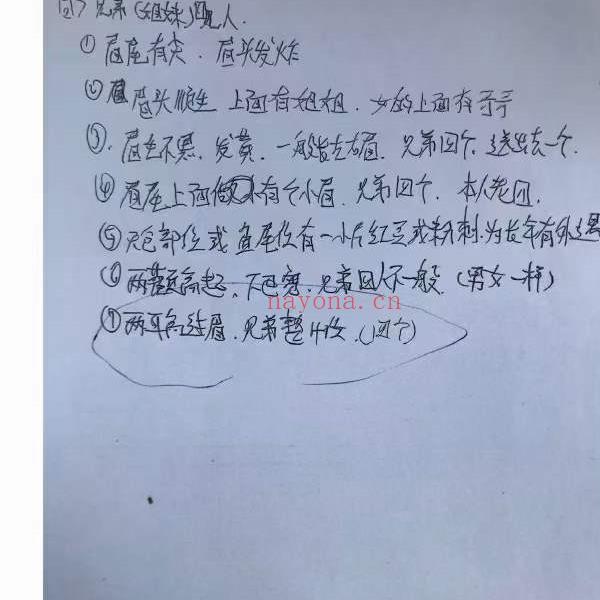 兄弟(姐妹)四人.
① 眉尾有尖. 眉头发炸
② 眉头顺生 上面有姐姐. 女的上面有哥哥
③. 眉毛不黑. 发黄. 一般指左右眉. 兄弟四个. 送出去一个.
④ 眉尾上面有个小眉. 兄弟四个. 本人老四.
⑤ 部位或鱼尾位有一小片红豆或粉刺.为长年有外遇
⑥ 两高起. 下巴宽. 兄弟四人不一般. (男女一样)
nayona.cn
⑦ 两耳高过眉. 兄弟整 (四个)